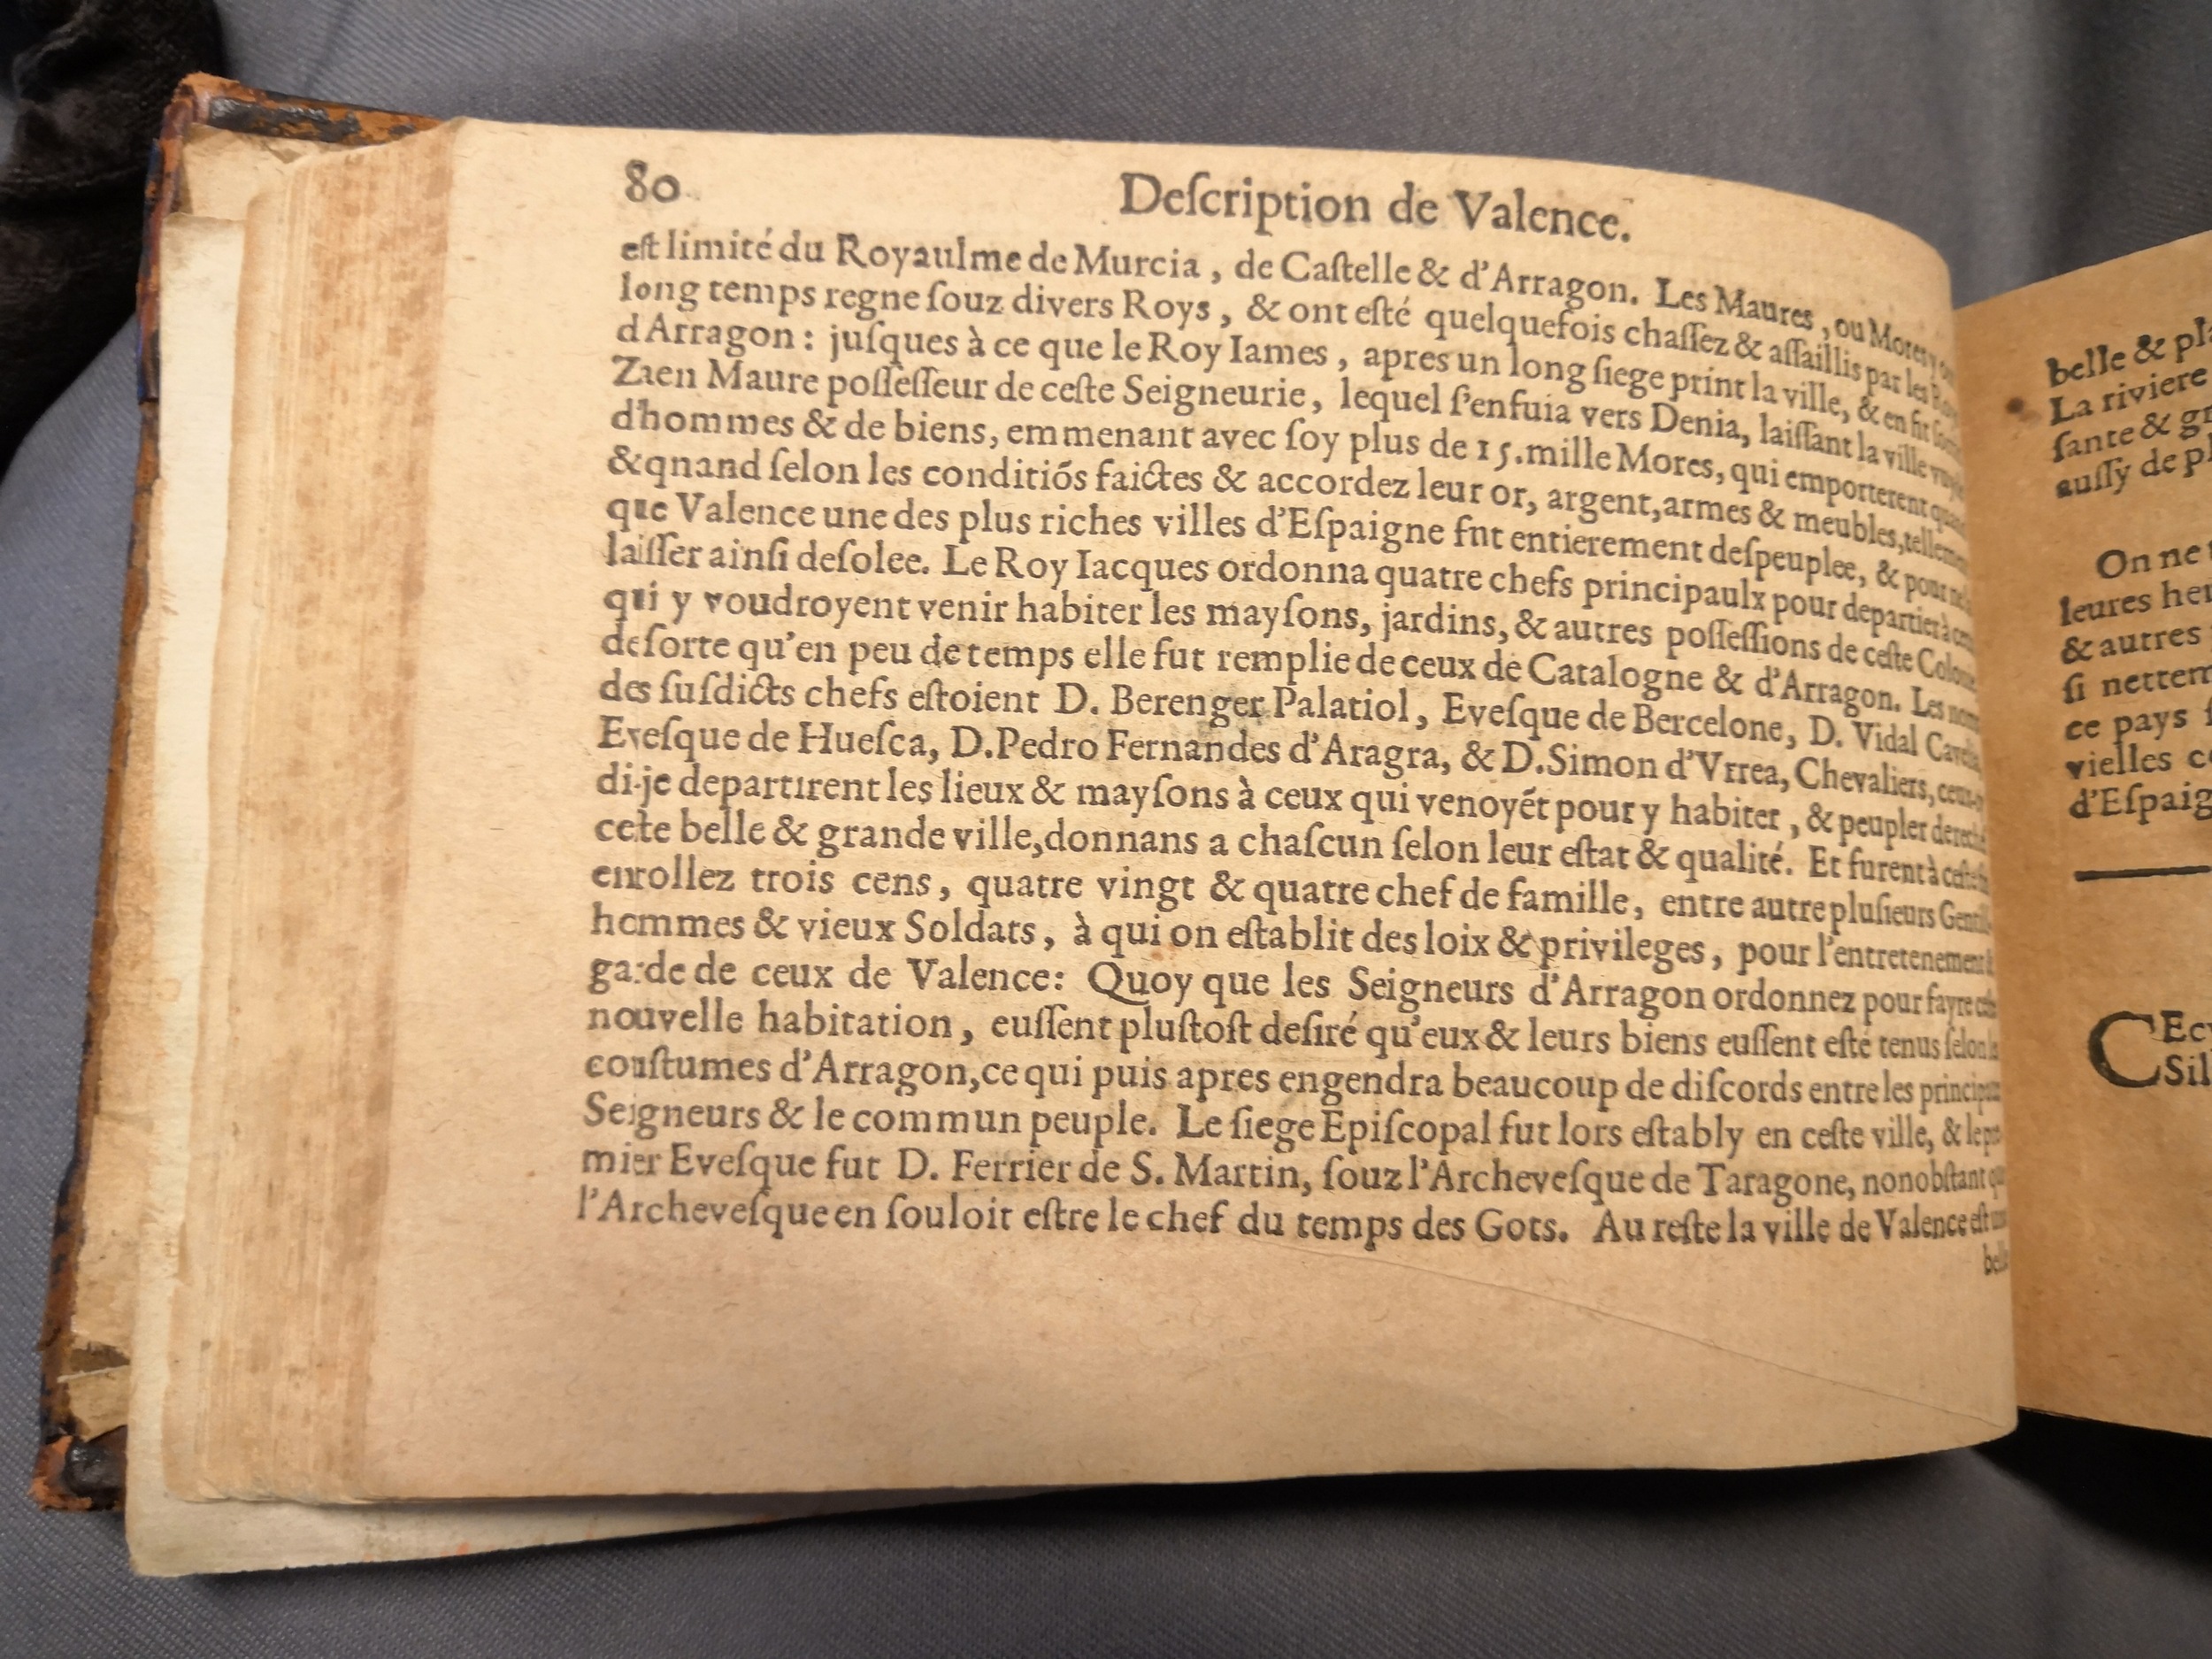 80
Deſcription de Valence.
eſt limité du Royaulme de Murcia, de Caſtelle & d'Arragon. Les Maures, ou Mores y
long temps regne ſouz divers Roys, & ont eſté quelquefois chaſſez & aſſaillis par les
d Arragon: juſques à ce que le Roy Iames, apres un long ſiege print la ville, & en fut
Zaen Maure poſſeſſeur de ceſte Seigneurie, lequel ſ'enfuia vers Denia, laiſſant la ville
d'hommes & de biens, emmenant avec ſoy plus de 15.mille Mores, qui emporterent
& qnand ſelon les conditiós faictes & accordez leur or, argent, armes & meubles,
que Valence une des plus riches villes d'Eſpaigne fnt entierement deſpeuplee, & pour
laiſſer ainſi deſolee. Le Roy Iacques ordonna quatre chefs principaulx pour departier à
qui y voudroyent venir habiter les mayſons, jardins, & autres poſſeſſions de ceſte
deſorte qu'en peu de temps elle fut remplie de ceux de Catalogne & d'Arragon. Les
des ſuſdicts chefs eſtoient D. Berenger Palatiol, Eveſque de Bercelone, D. Vidal
Eveſque de Hueſca, D. Pedro Fernandes d'Aragra, & D. Simon d'Vrrea, Chevaliers,
di-je departirent les lieux & mayſons à ceux qui venoyét pour y habiter, & peupler
cete belle & grande ville, donnans a chaſcun ſelon leur eſtat & qualité. Et furent à
enrollez trois cens, quatre vingt & quatre chef de famille, entre autre pluſieurs
hommes & vieux Soldats, à qui on eſtablit des loix & privileges, pour l'entretenement
garde de ceux de Valence: Quoy que les Seigneurs d'Arragon ordonnez pour fayre
nouvelle habitation, euſſent pluſtoſt deſiré qu'eux & leurs biens euſſent eſté tenus ſelon
couſtumes d'Arragon, ce qui puis apres engendra beaucoup de diſcords entre les
Seigneurs & le commun peuple. Le ſiege Epiſcopal fut lors eſtably en ceſte ville, & le
mier Eveſque fut D. Ferrier de S. Martin, ſouz l'Archeveſque de Taragone, nonobſtant
l'Archeveſque en ſouloit eſtre le chef du temps des Gots. Au reſte la ville de Valence eſt
belle &
La riviere
ſante &
auſſy de
On ne
leures
& autres
ſi
ce pays
vielles